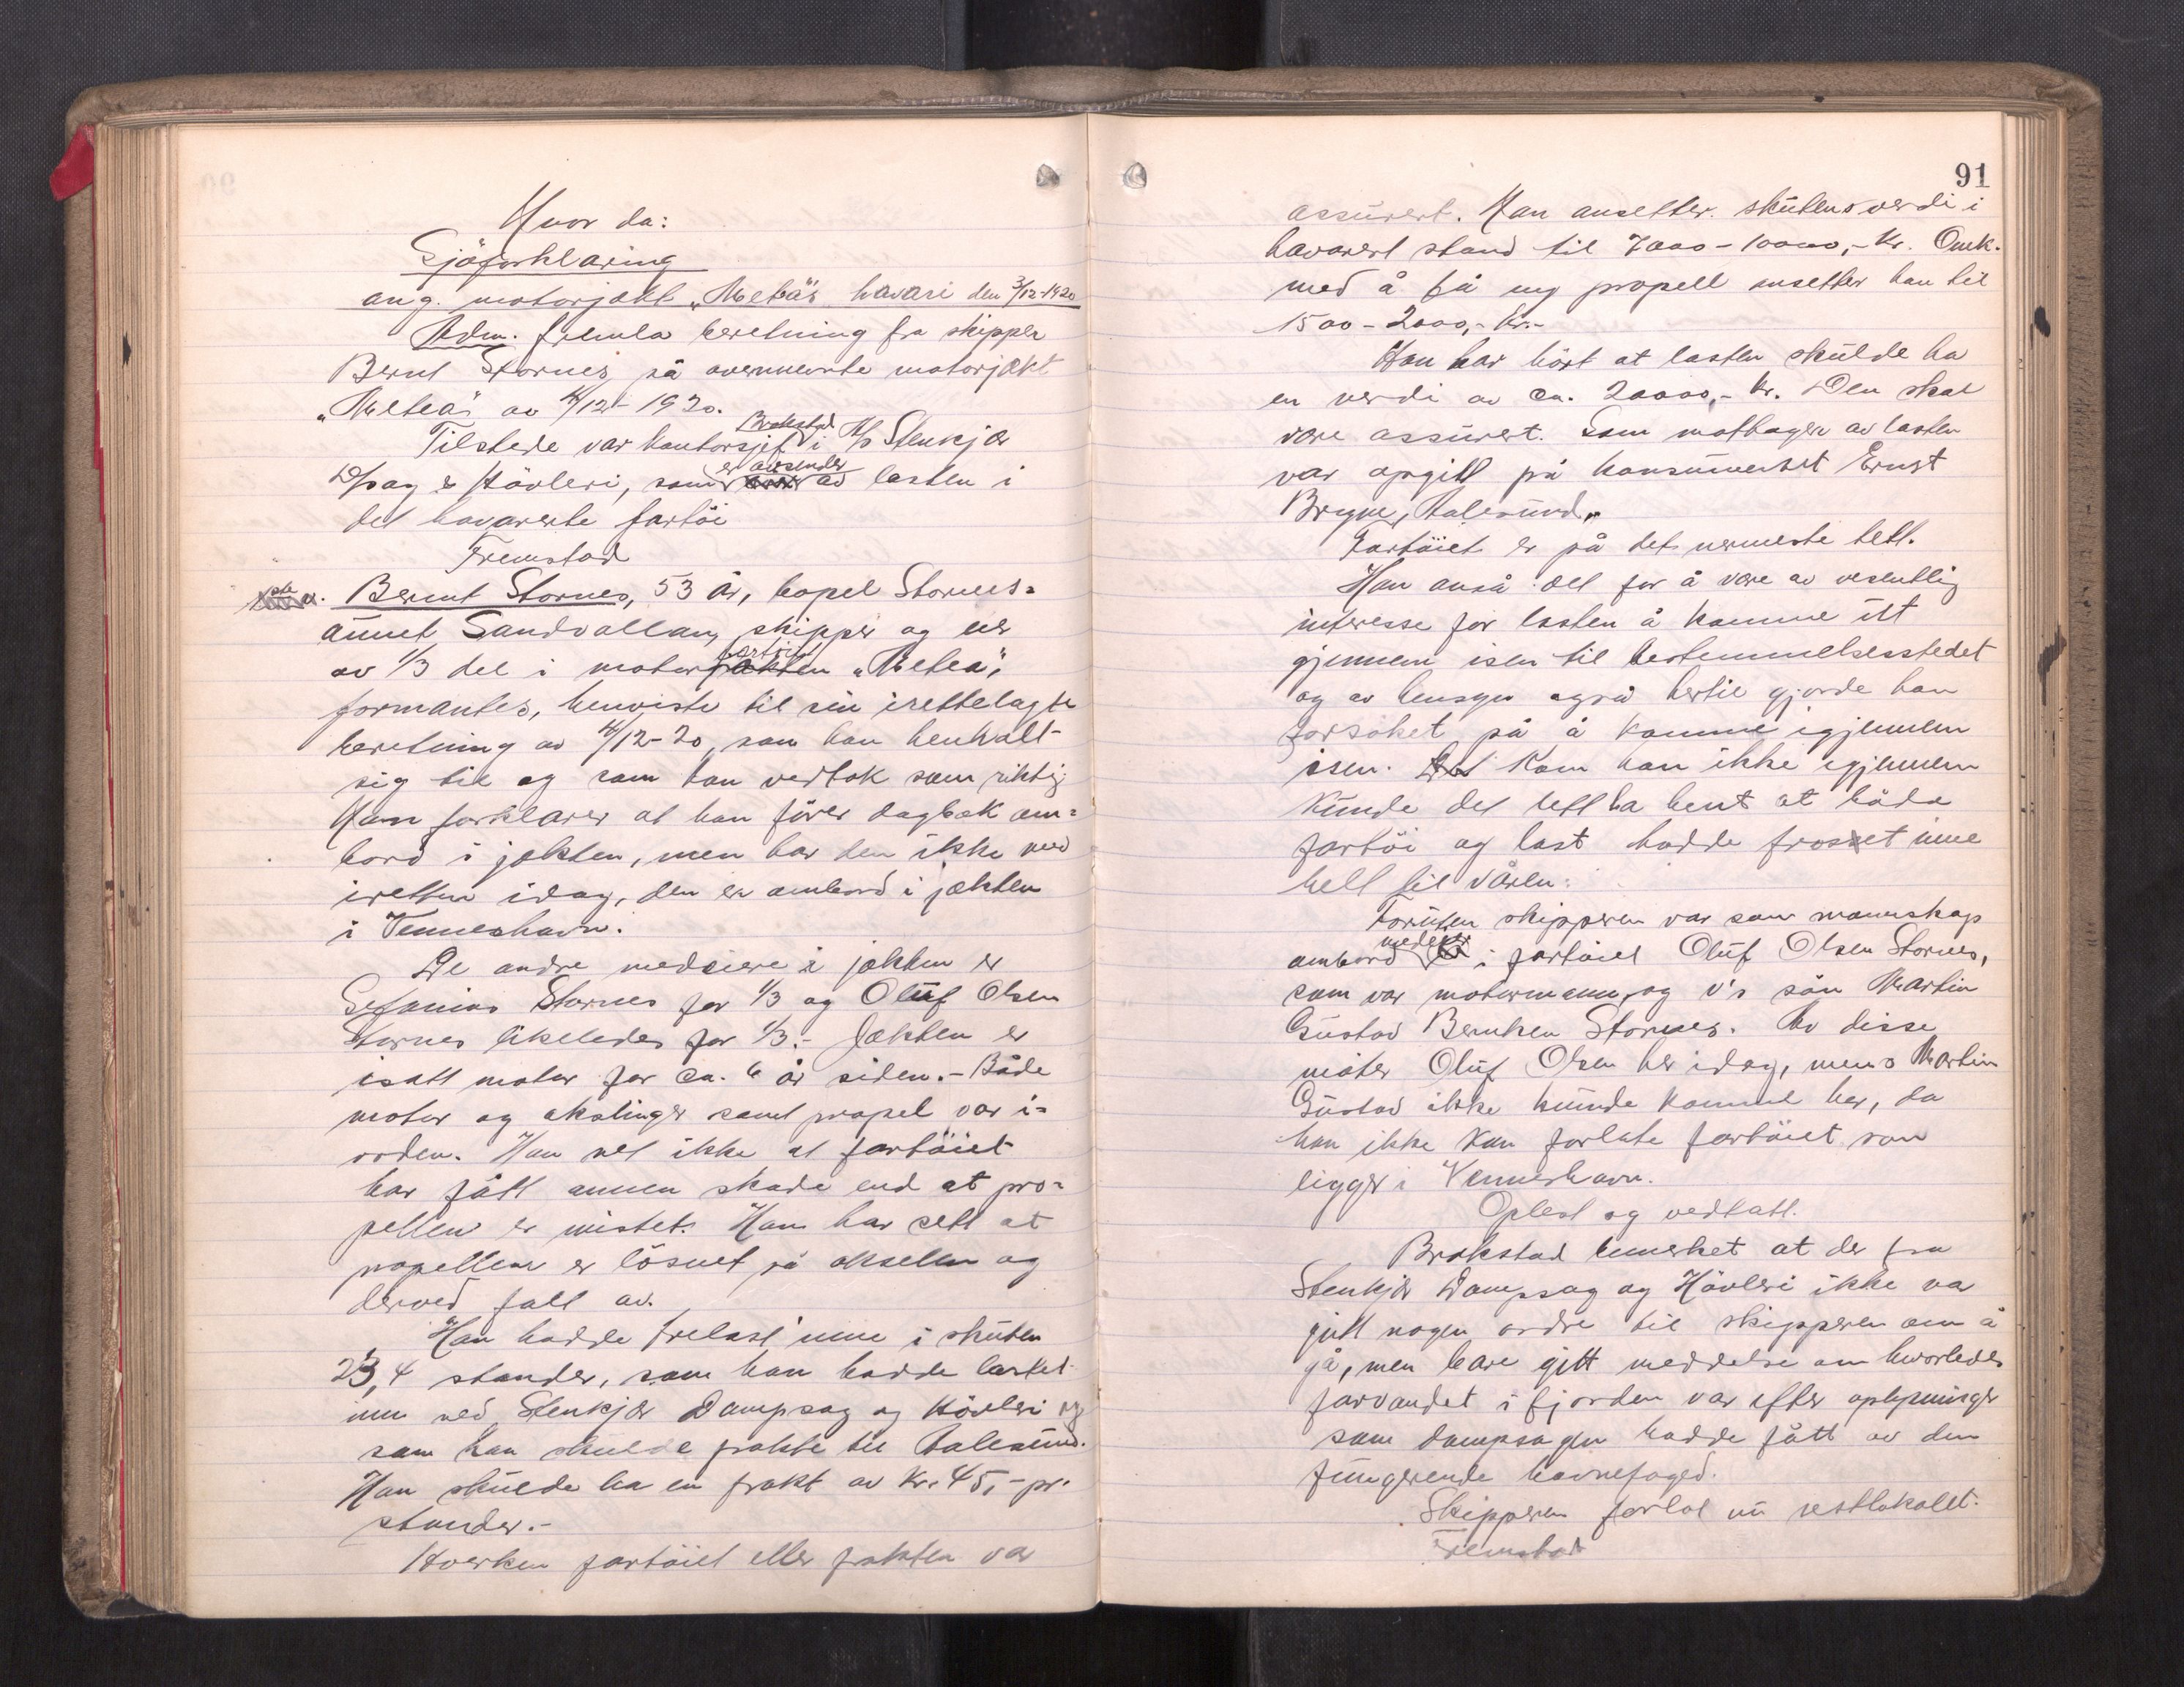 Hvor da:
Sjöforklaring
ang. motorjakt „Metea's havari den 3/12-1920
Adm. fremla beretning fra skipper
Bernt Stornes på ovennevnte motorjakt
„Metea" av 4/12-1920.
Tilstede var kontorsjef Brokstad i A/s Stenkjær
D/sag & Hövleri, som er avsender av lasten i
det havarerte fartöi
Fremstod
Bernt Stornes, 53 år, bopel Stornes=
aunet Sandvollan, skipper og eier
av 1/3 del i motorfartöiet „Metea",
formantes, henviste til sin irettelagte
beretning av 4/12-20, som han henholt
sig til og som han vedtok som riktig
Han forklarer at han förer dagbok om=
bord i jakten, men har den ikke med
iretten idag, den er ombord i jakten
i Venneshavn.
De andre medeiere i jakten er
Sefanias Stornes for 1/3 og Oluf Olsen
Stornes likeledes for 1/3.- Jakten er
isatt motor for ca. 6 år siden.- Både
motor og akslinger samt propel var i=
orden. Han vet ikke at fartöiet
har fått annen skade end at pro=
pellen er mistet. Han har sett at
propellen er lösnet på akselen og
derved falt av.
Han hadde trelast inne i skuten
23,4 stander, som han hadde lastet
inn ved Stenkjær Dampsag og Hövleri og
som han skulde frakte til Aalesund.
Han skulde ha en frakt av Kr. 45,- pr.
stander.-
Hverken fartöiet eller frakten var
91
assurert. Han ansetter skutens verdi i
havarert stand til 7000-10000,- Kr. Omk.
med å få ny propell ansetter han til
1500-2000,- Kr.-
Han har hört at lasten skulde ha
en verdi av ca. 20000,- kr. Den skal
være assurert. Som mottager av lasten
var opgitt på konsumentet Ernst
Brynne, Aalesund.
Fartöiet er på det nermeste tett.
Han anså det for å være av vesentlig
interesse for lasten å komme ut
gjennem isen til bestemmelsesstedet
og av hensyn også hertil gjorde han
forsöket på å komme igjennem
isen. Kom han ikke igjennem
kunde det lett ha hent at både
fartöi og last hadde frosset inne
helt til våren.
Foruten skipperen var som mannskap
ombord medeier i fartöiet Oluf Olsen Stornes,
som var motormann, og v's sön Martin
Gustav Berntsen Stornes. Av disse
möter Oluf Olsen her idag, mens Martin
Gustav ikke kunde komme her, da
han ikke kan forlate fartöiet som
ligger i Venneshavn.
Oplest og vedtatt.
Brokstad bemerket at der fra
Stenkjær Dampsag og Hövleri ikke var
gitt nogen ordre til skipperen om å
gå, men bare gitt meddelse om hvorledes
farvandet i fjorden var efter oplysninger
som dampsagen hadde fått av den
fungerende havnefoged.
Skipperen forlot nu rettslokalet.
Fremstod